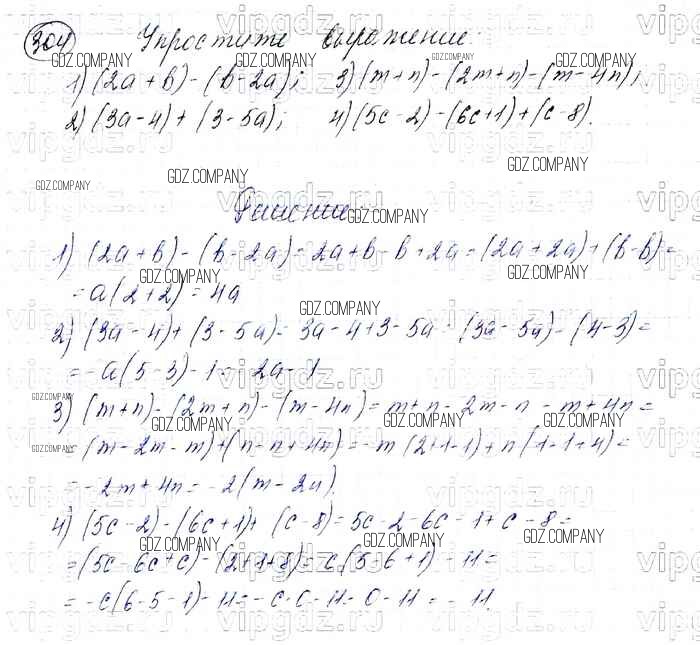 304 Упростите выражение:
1) (2a + b) - (b - 2a); 3) (m + n) - (2m + n) - (m - 4n);
2) (3a - 4) + (3 - 5a); 4) (5c - 2) - (6c + 1) + (c - 8).
Решение
1) (2a + b) - (b - 2a) = 2a + b - b + 2a = (2a + 2a) + (b - b) =
= a(2 + 2) = 4a
2) (3a - 4) + (3 - 5a) = 3a - 4 + 3 - 5a = (3a - 5a) - (4 - 3) =
= -a(5 - 3) - 1 = -2a - 1
3) (m + n) - (2m + n) - (m - 4n) = m + n - 2m - n - m + 4n =
= (m - 2m - m) + (n - n + 4n) = -m(2 + 1 - 1) + n(1 - 1 + 4) =
= -2m + 4n = -2(m - 2n).
4) (5c - 2) - (6c + 1) + (c - 8) = 5c - 2 - 6c - 1 + c - 8 =
= (5c - 6c + c) - (2 + 1 + 8) = c(5 - 6 + 1) - 11 =
= -c(6 - 5 - 1) - 11 = -c·0 - 11 = 0 - 11 = -11
GDZ.COMPANY
vipgdz.ru